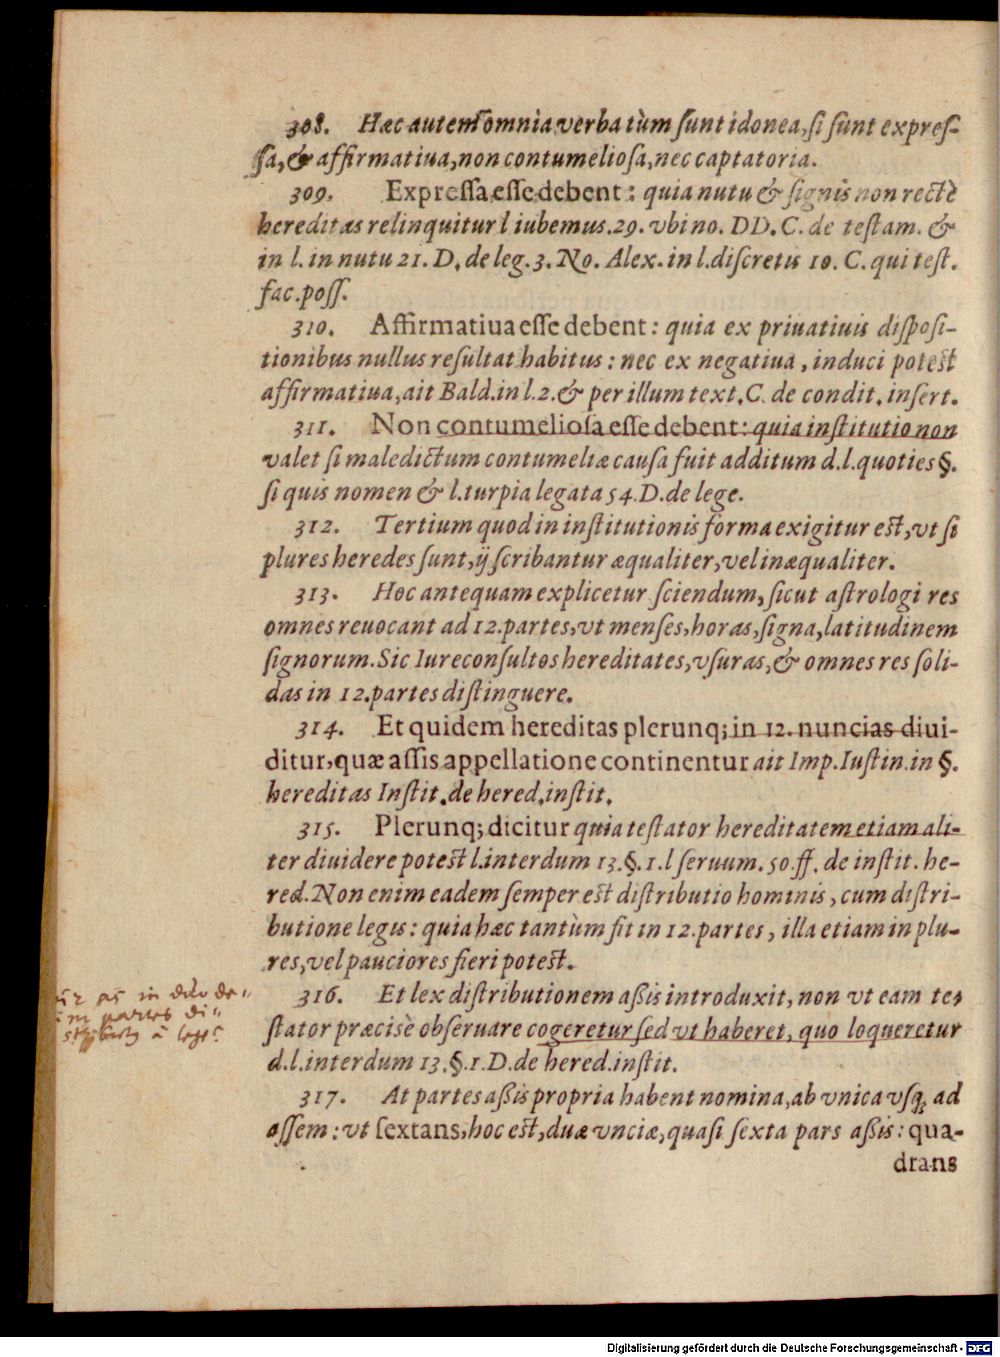 308. Hæc autem omnia verba tùm ſunt idonea, ſi ſunt expreſ-
ſa, & affirmatiua, non contumelioſa, nec captatoria.
309. Expreſſa eſſe debent: quia nutu & ſignis non rectè
hereditas relinquitur l iubemus. 29. vbi no. DD. C. de teſtam. &
in l. in nutu 21. D. de leg. 3. No. Alex. in l. diſcretis 10. C. qui teſt.
fac. poſſ.
310. Affirmatiua eſſe debent: quia ex priuatiuis diſpoſi-
tionibus nullus reſultat habitus: nec ex negatiua, induci poteſt
affirmatiua, ait Bald. in l. 2. & per illum text. C. de condit. inſert.
311. Non contumelioſa eſſe debent: quia inſtitutio non
valet ſi maledictum contumeliæ cauſa fuit additum d. l. quoties §.
ſi quis nomen & l. turpia legata 54. D. de lege.
312. Tertium quod in inſtitutionis forma exigitur eſt, vt ſi
plures heredes ſunt, ij ſcribantur æqualiter, vel inæqualiter.
313. Hoc antequam explicetur ſciendum, ſicut aſtrologi res
omnes reuocant ad 12. partes, vt menſes, horas, ſigna, latitudinem
ſignorum. Sic Iureconſultos hereditates, vſuras, & omnes res ſoli-
das in 12. partes diſtinguere.
314. Et quidem hereditas plerunq; in 12. nuncias diui-
ditur, quæ aſſis appellatione continentur ait Imp. Iuſtin. in §.
hereditas Inſtit. de hered. inſtit.
315. Plerunq; dicitur quia teſtator hereditatem etiam ali-
ter diuidere poteſt l. interdum 13. §. 1. l ſeruum. 50. ff. de inſtit. he-
red. Non enim eadem ſemper eſt diſtributio hominis, cum diſtri-
butione legis: quia hæc tantùm fit in 12. partes, illa etiam in plu-
res, vel pauciores fieri poteſt.
316. Et lex diſtributionem aßis introduxit, non vt eam te-
ſtator præcisè obſeruare cogeretur ſed vt haberet, quo loqueretur
d. l. interdum 13. §. 1. D. de hered. inſtit.
317. At partes aßis propria habent nomina, ab vnica vſq; ad
aſſem: vt ſextans, hoc eſt, duæ vnciæ, quaſi ſexta pars aßis: qua-
drans
as in duo de-
partes di-
à lege
Digitalisierung gefördert durch die Deutsche Forschungsgemeinschaft - DFG